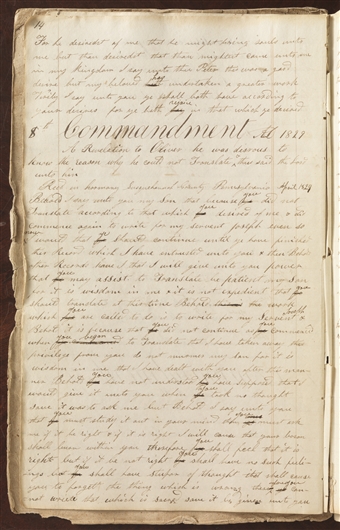 For he desireth of me, that he might bring souls unto
me but thou desiredst that thou mightest come unto me
in my Kingdom I say unto thee Peter this was a good
desire but my beloved has undertaken a greater work
Verily I say unto you ye shall both have according to
your desires for ye both joy in that which ye desired
8th Commandment AD 1829
A Revelation to Oliver he was desirous to
know the reason why he could not Translate thus said the Lord
unto him
Recd in harmony Susquehannah County Pennsylvania April 1829
Behold I say unto you my Son that because you did not
Translate according to that which you desired of me & did
commence again to write for my servent Joseph even so
I would that you should continue until ye have finished
this Record which I have intrusted unto you & then Behold
other Records have I that I will give unto you power
that you may assist to Translate be patient my son
for it is wisdom in me & it is not expedient that you
should translate at this time Behold the work
which you are called to do is to write for my Servent Joseph
& Behold it is because that you did not continue as you commenced
when you began to Translate that I have taken away this
privilege from you do not murmer my Son for it is
wisdom in me that I have dealt with you after this man
ner Behold you have not understood you have supposed that I
would give it unto you when you took no thought
save it was to ask me but Behold I say unto you
that you must study it out in your mind then you must ask
me if it be right & if it is right I will cause that your bosom
shall burn within you therefore you shall feel that it is
right but if it be not right you shall have no such feel-
ings but you shall have stupor of thought that shall cause
you to forget the thing which is wrong therefore you can
not write that which is sacred save it is given unto you